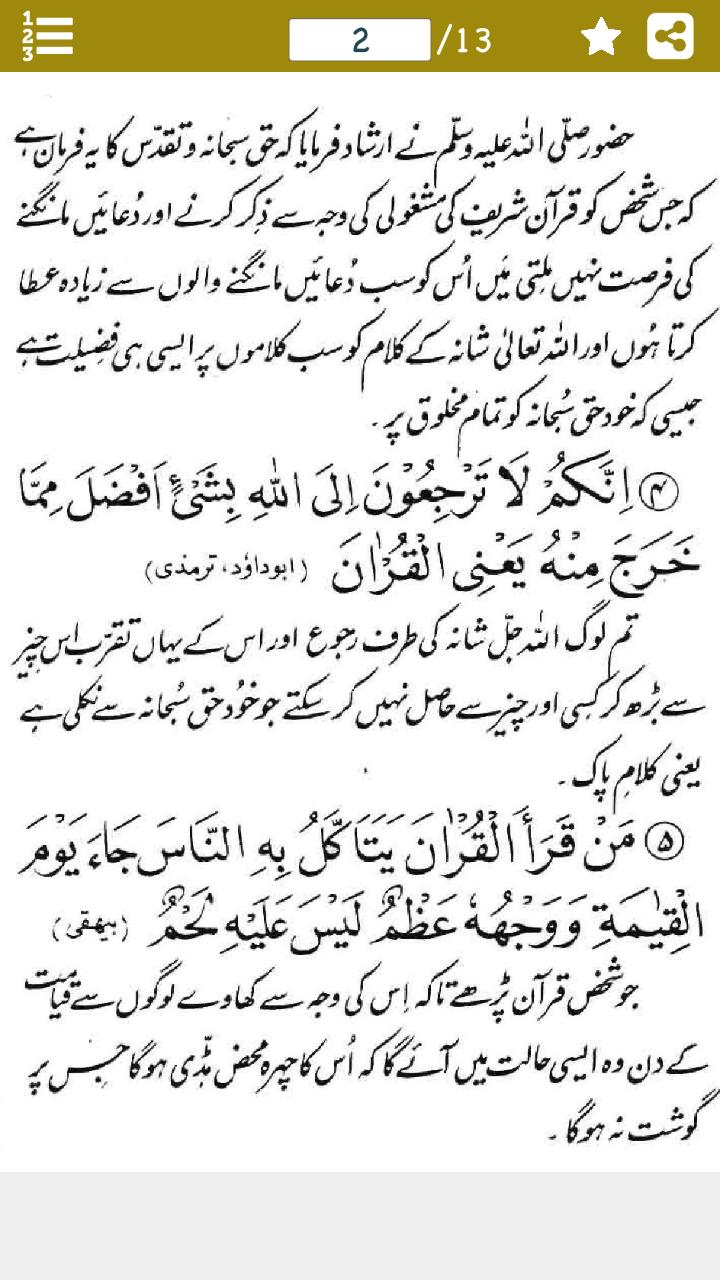 1
2
3
2 /13
حضور صلّی اللہ علیہ وسلّم نے ارشاد فرمایا کہ حق سبحانہ و تقدّس کا یہ فرمان ہے
کہ جس شخص کو قرآن شریف کی مشغولی کی وجہ سے ذِکر کرنے اور دُعائیں مانگنے
کی فرصت نہیں مِلتی مَیں اُس کو سب دُعائیں مانگنے والوں سے زیادہ عطا
کرتا ہُوں اور اللہ تعالیٰ شانہ کے کلام کو سب کلاموں پر ایسی ہی فضِیلت ہے
جیسی کہ خود حق سُبحانہ کو تمام مخلوق پر۔
۴ اِنَّكُمْ لَا تَرْجِعُوْنَ اِلَى اللهِ بِشَىْءٍ اَفْضَلَ مِمَّا
خَرَجَ مِنْهُ يَعْنِى الْقُرْاٰنَ (ابوداؤد، ترمذی)
تم لوگ اللہ جلّ شانہ کی طرف رجوع اور اس کے یہاں تقرّب اس چیز
سے بڑھ کر کسی اور چیز سے حاصل نہیں کر سکتے جو خُود حق سُبحانہ سے نکلی ہے
یعنی کلامِ پاک۔
۵ مَنْ قَرَأَ الْقُرْاٰنَ يَتَاَكَّلُ بِهِ النَّاسَ جَاءَ يَوْمَ
الْقِيٰمَةِ وَوَجْهُهٗ عَظْمٌ لَيْسَ عَلَيْهِ لَحْمٌ (بیهقی)
جو شخص قرآن پڑھے تاکہ اِس کی وجہ سے کھاوے لوگوں سے قیامت
کے دن وہ ایسی حالت میں آئے گا کہ اُس کا چہرہ محض ہڈّی ہوگا جس پر
گوشت نہ ہوگا۔